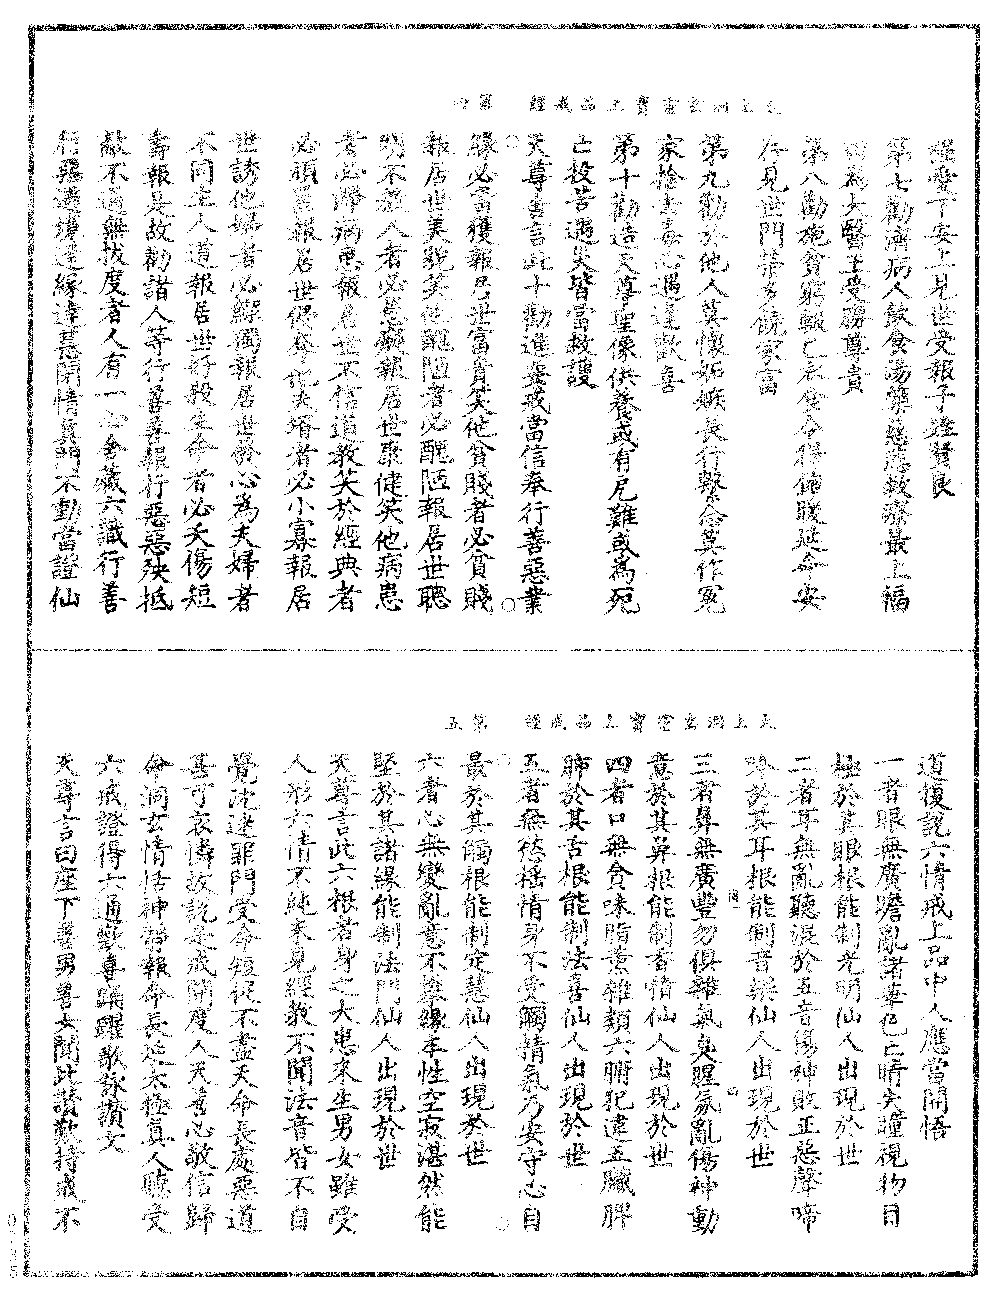 太上洞玄靈寶上品戒經　第四
愛下安上見世受報子遊賢良
第七勸濟病人飲食湯藥慈悲救療最上福
田為大醫王受勝尊貴
第八勸施貧窮輟己衣食令得飽暖延命安
存見世門榮多饒家富
第九勸於他人莫懷妬嫉長行繫念莫作冤
家捨毒害心遇逢歡喜
第十勸造天尊聖像供養或有厄難或為死
亡投苦遇災皆當救護
天尊喜言此十勸進齋戒當信奉行善惡業
緣必富獲報見世富貴笑他貧賤者必貧賤
報居世美貌笑他醜陋者必醜陋報居世聰
明不教人者必愚癡報居世康健笑他病患
者必滯病患報居世不信道教笑於經典者
必頑囂報居世偲奪他夫壻者必小寡報居
世誘他婦者必鰥獨報居世發心為夫婦者
不同生人道報居世好殺生命者必夭傷短
壽報是故勸諸人等行善善報行惡惡殃抵
敵不過無拔度者人有一心含藏六識行善
行惡遇境逢緣達慧閉情真門不動當證仙
太上洞玄靈寶上品戒經　第五
道復說六情戒上品中人應當開悟
一者眼無廣瞻亂諸華色亡睛失瞳視物目
極於其眼根能制光明仙人出現於世
二者耳無亂聽混於五音傷神敗正惡聲啼
於其耳根能制音樂仙人出現於世
三者鼻無廣豐勿俱雜氣臭腥氛亂傷神動
意於其鼻根能制香積仙人出現於世
四者口無貪味脂熏雜類六腑犯違五臟脾
肺於其舌根能制法喜仙人出現於世
五者無愁搖情身不受觸精氣乃安守心自
最於其觸根能制定慧仙人出現於世
六者心無變亂意不攀緣本性空寂湛然能
堅於其諸緣能制法門仙人出現於世
天尊言此六根若身之大患眾生男女雖受
人形六情不純未見經教不聞法音皆不自
覺沈迷罪門受命短促不盡天命長處惡道
甚可哀憐故說是戒開度人天善心敬信歸
命洞玄情恬神報命長延太極真人聽受
六戒證得六通歡喜踴躍歌詠讚文
天尊言曰座下善男善女聞此讚歎持戒不